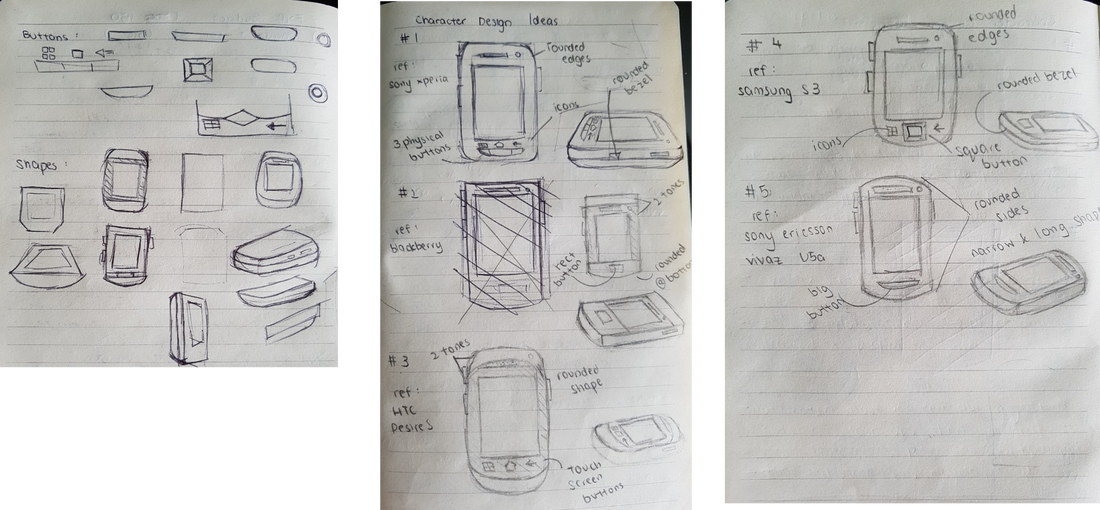 Buttons :
Shapes :
Character Design Ideas
#1
ref :
sony xperia
rounded
edges
rounded
bezel
icons
3 physical
buttons
#2
ref :
blackberry
2 tones
rect
button
rounded
@ bottom
#3
ref :
HTC
Desire S
2 tones
rounded
shape
touch
screen
buttons
# 4
ref :
samsung S3
rounded
edges
rounded bezel
icons
square
button
#5
ref :
sony ericsson
vivaz U5a
rounded
sides
narrow & long shape
big
button